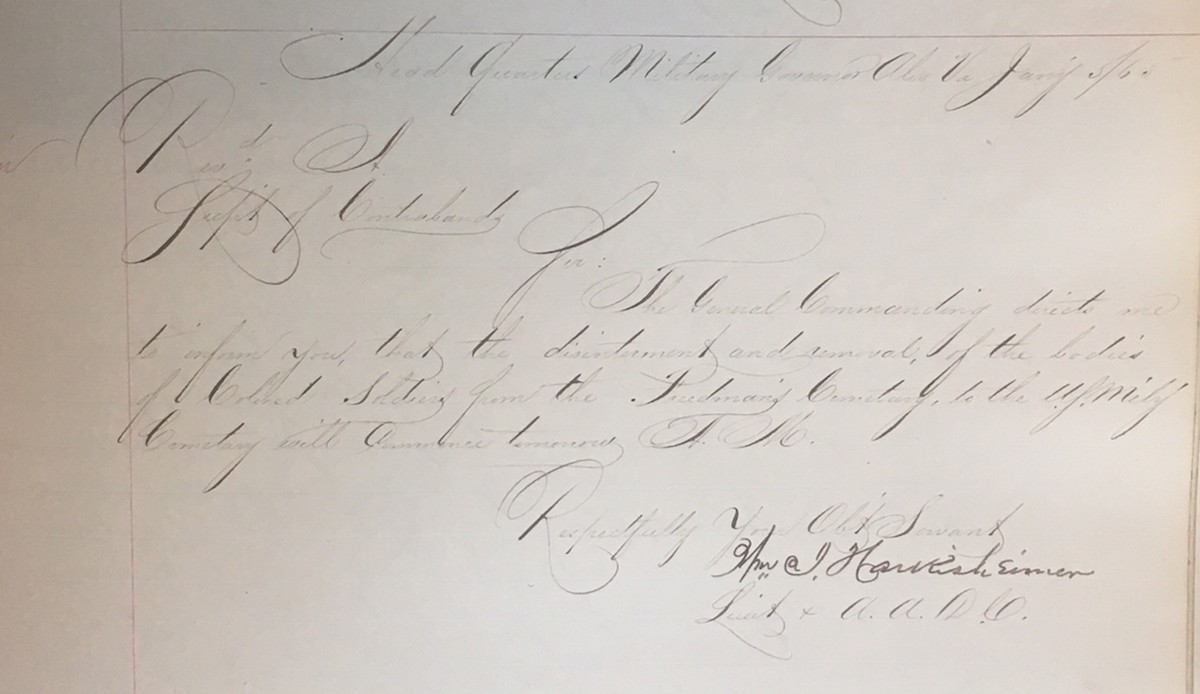 Head Quarters Military Governor Alex Va Jany 5/65
Revd A.
Supt of Contrabands
Sir:
The General Commanding directs me
to inform you, that the disinterment and removal, of the bodies
of Colored Soldiers from the Freedman's Cemetary, to the U.S. Mily
Cemetary will Commence tomorrow A. M.
Respectfully Your Obt Servant
Wm
Lieut & A. A. D. C.